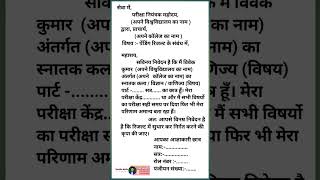 सेवा में,
परीक्षा नियंत्रक महोदय,
(अपने विश्वविद्यालय का नाम )
द्वारा, प्राचार्य,
(अपने कॉलेज का नाम )
विषय :- पेंडिंग रिजल्ट के संबंध में,
महाशय,
सविनय निवेदन है कि मैं विवेक
कुमार (अपने विश्वविद्यालय का नाम)
अंतर्गत (अपने कॉलेज का नाम) का
स्नातक कला / विज्ञान / वाणिज्य (विषय)
पार्ट -......... सत्र...... का छात्र हूँ। मेरा
परीक्षा केंद्र............ था और मैं सभी विषयों
का परीक्षा सही समय पर दिया फिर भी मेरा
परिणाम अमान्य बता रहा है।
अतः आपसे विनम्र निवेदन है
है कि रिजल्ट में सुधार कर निर्गत करने की
कृपा की जाए।
आपका आज्ञाकारी छात्र
नाम:-...........
सत्र:-............
रोल नंबर :-.........
पंजीयन संख्या:-......